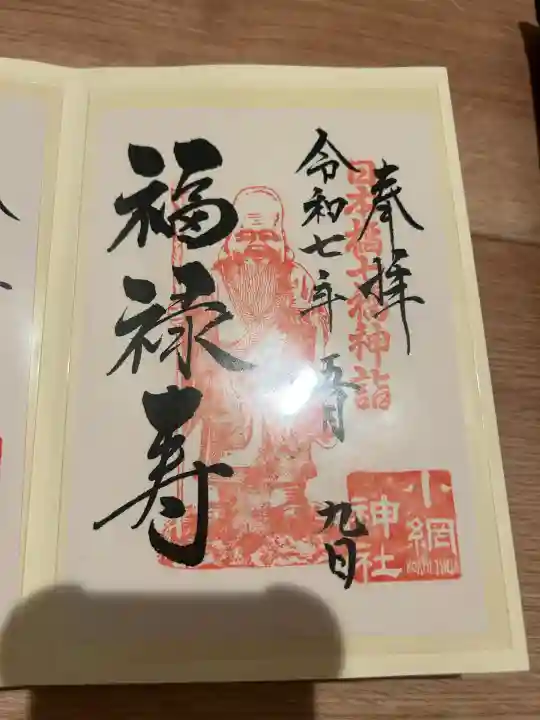 奉拝
日本橋七福神詣
令和七年 五月 九日
福禄寿
小網
神社
KOAMI JINJA